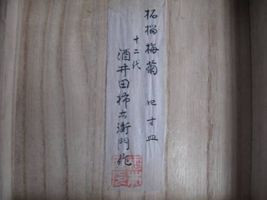 柘榴梅菊 四寸皿
十二代
酒井田柿右衛門